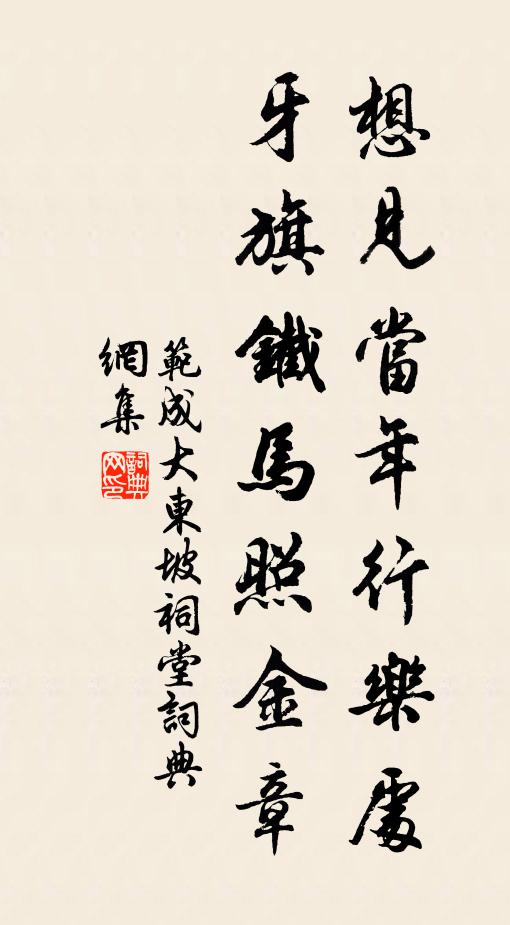 想見當年行樂處
牙旗鐵馬照金章
範成大東坡祠堂詞典
網集
詞典
网印